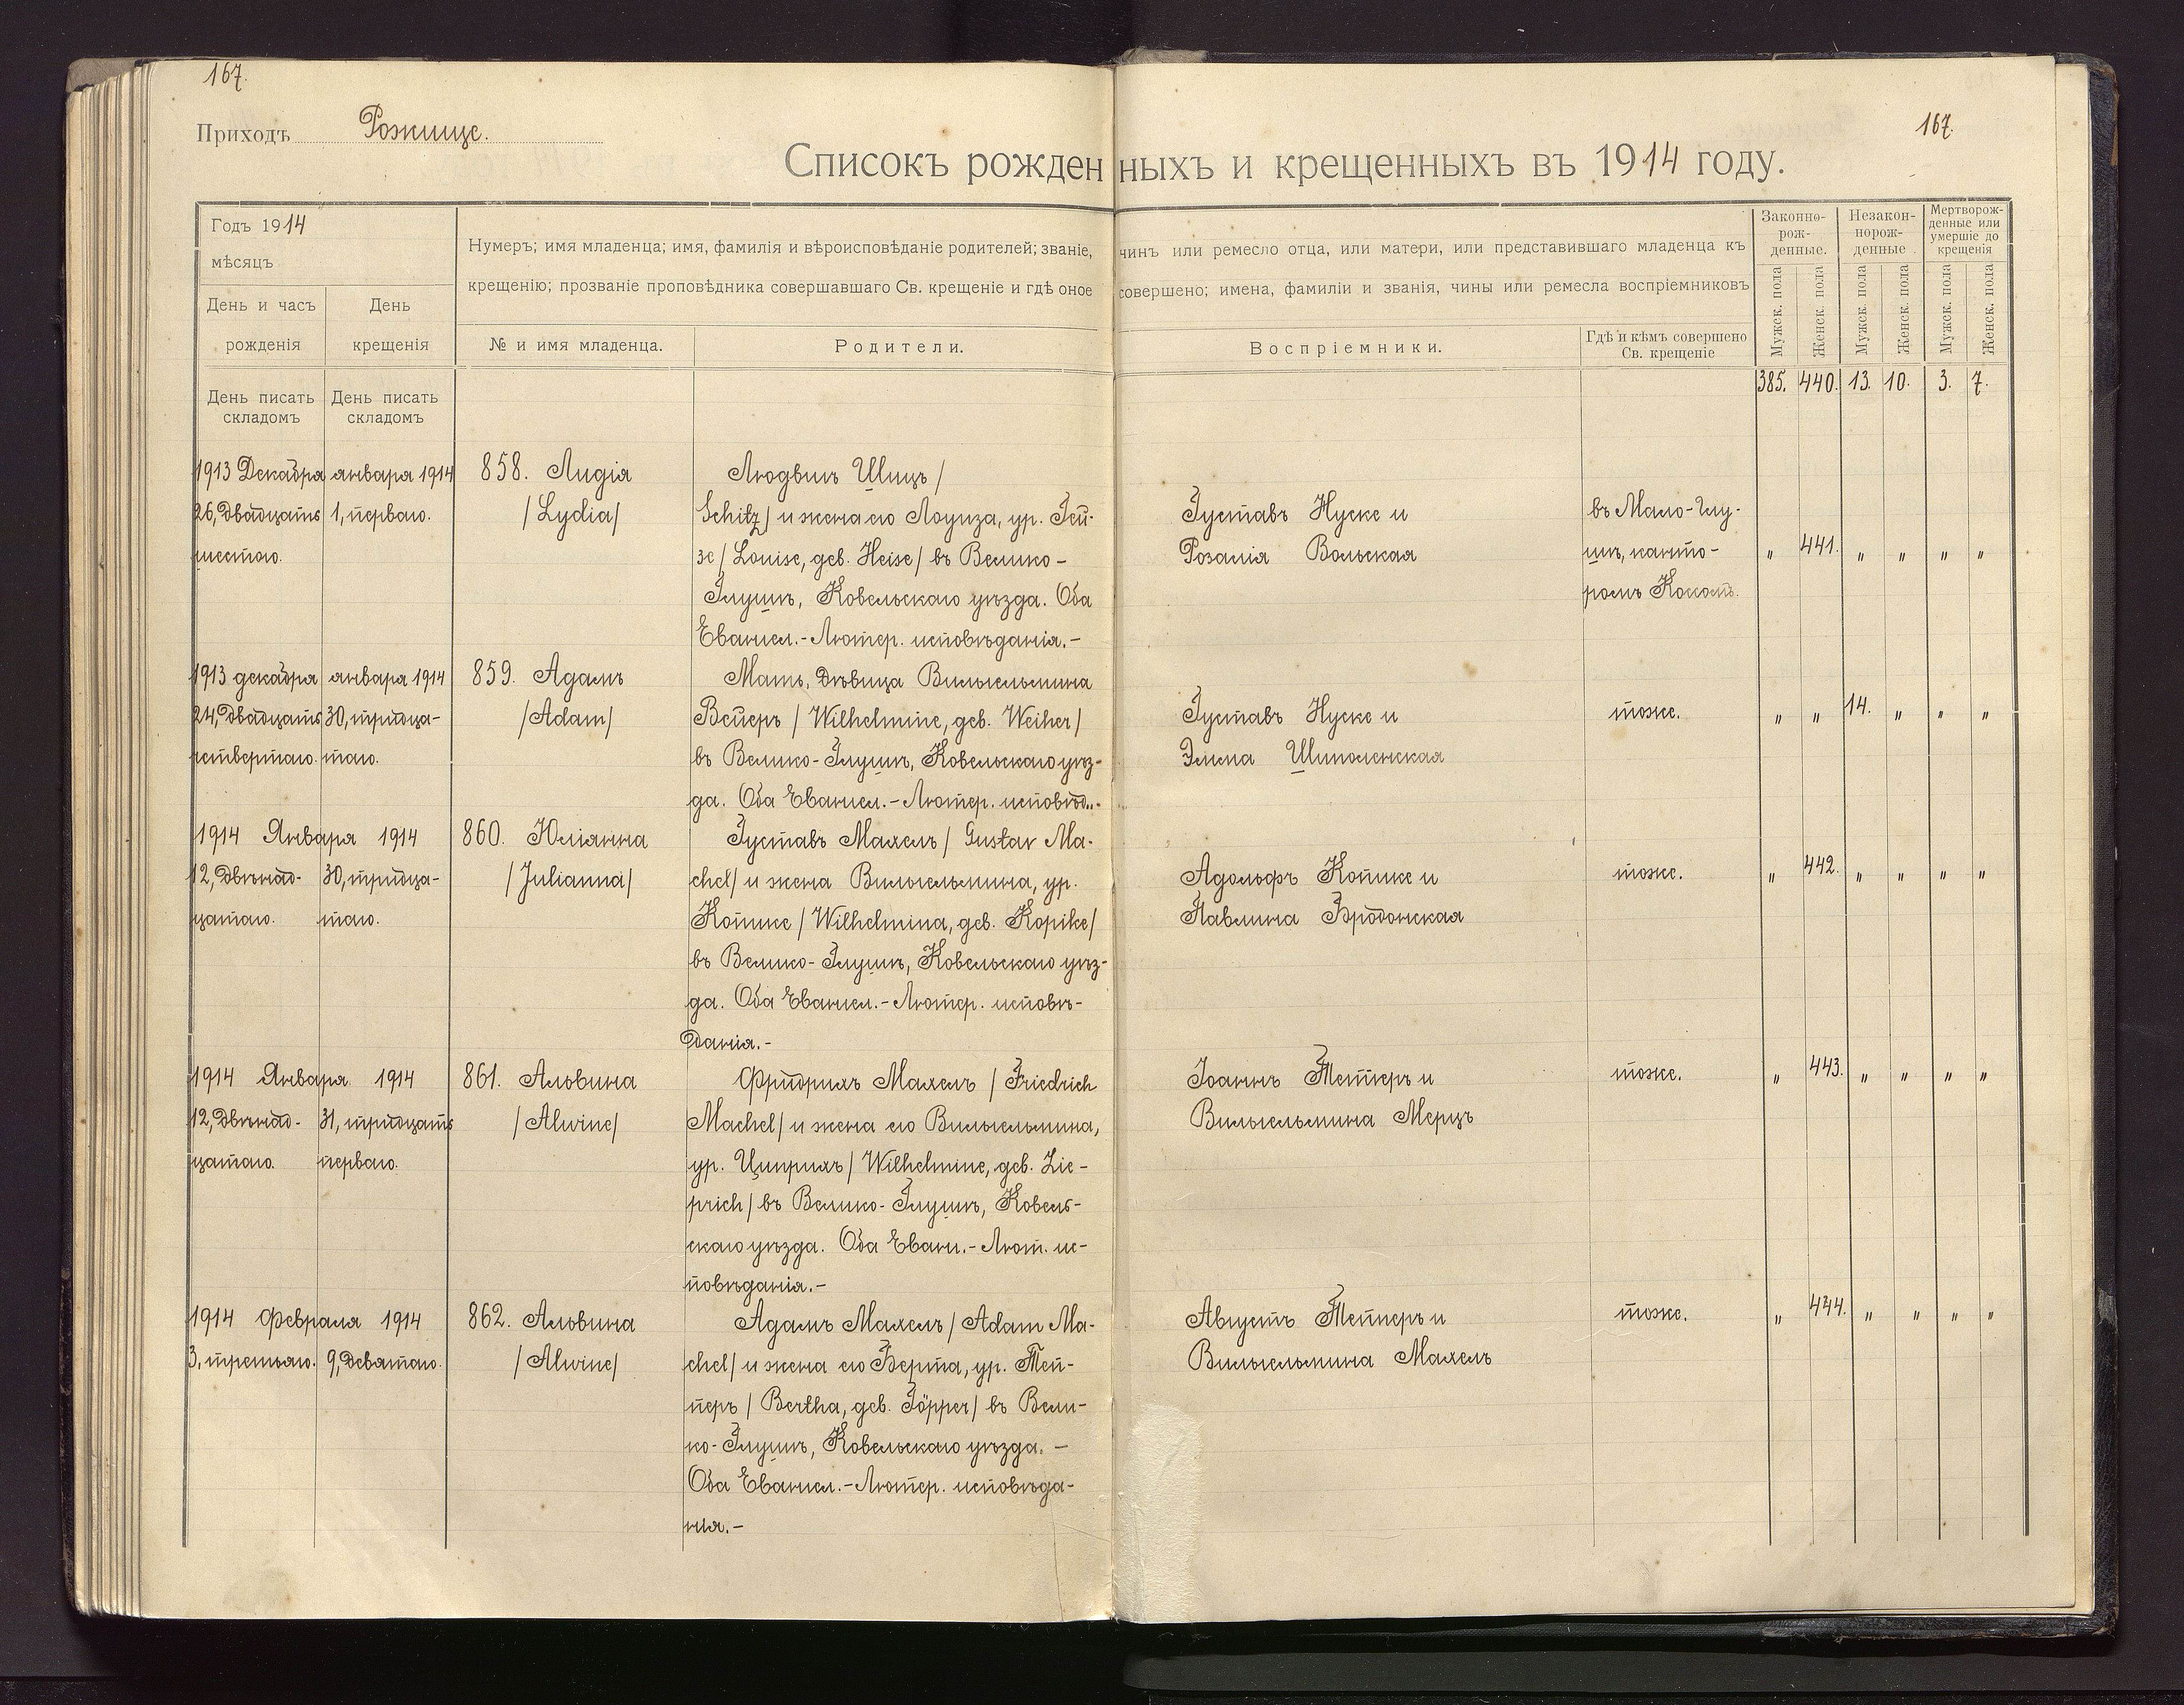 167.
167.
Приходъ Рожище.
Списокъ рожденныхъ и крещенныхъ въ 1914 году.
Годъ 1914
мѣсяцъ
День и часъ рожденія
День крещенія
Нумеръ; имя младенца; имя, фамилія и вѣроисповѣданіе родителей; званіе, чинъ или ремесло отца, или матери, или представившаго младенца къ
крещенію; прозваніе проповѣдника совершавшаго Св. крещеніе и гдѣ оное совершено; имена, фамиліи и званія, чины или ремесла воспріемниковъ
№ и имя младенца.
Родители.
Воспріемники.
Гдѣ и кѣмъ совершено
Св. крещеніе
Законно-
рож-
денные.
Незакон-
норож-
денные
Мертворож-
денные или
умершіе до
крещенія
Мужск. пола
Женск. пола
Мужск. пола
Женск. пола
Мужск. пола
Женск. пола
День писать
складомъ
День писать
складомъ
385. 440. 13. 10. 3. 7.
1913 Декабря
26, двадцать
шестого.
января 1914
1, перваго.
858. Лидія
/Lydia/
Людвигъ Шицъ /
Schitz/ и жена его Лоуиза, ур. Гей-
зе / Louise, geb. Heise/ въ Велико-
Глушѣ, Ковельскаго уѣзда. Оба
Евангел.-Лютер. исповѣданія.-
Густавъ Нуске и
Розалія Вольская
въ Мало-Глу-
шѣ, канто-
ромъ
" 441. " " " "
1913 декабря
24, двадцать
четвертаго.
января 1914
30, тридца-
таго.
859. Адамъ
/Adam/
Мать, дѣвица Вильгельмина
Вейеръ / Wilhelmine, geb. Weiher/
въ Велико-Глушѣ, Ковельскаго уѣз-
да. Оба Евангел.-Лютер. исповѣд..-
Густавъ Нуске и
Шиполенская
тоже.
" " 14. " " "
1914 Января 1914
12, двѣнад-
цатаго.
30, тридца-
таго.
860. Юліянна
/Julianna/
Густавъ Махель / Gustav Ma-
chel/ и жена Вильгельмина, ур.
Копике / Wilhelmina, geb. Kopike/
въ Велико-Глушѣ, Ковельскаго уѣз-
да. Оба Евангел.-Лютер. исповѣ-
данія.-
Адольфъ Копике и
Павлина Бродонская
тоже.
" 442. " " " "
1914 Января 1914
12, двѣнад-
цатаго.
31, тридцать
перваго.
861. Альвина
/Alwine/
Фридрихъ Махель / Friedrich
Machel/ и жена его Вильгельмина,
ур. Циприхъ / Wilhelmine, geb. Zie-
prich/ въ Велико-Глушѣ, Ковель-
скаго уѣзда. Оба Еванг.-Лют. ис-
повѣданія.-
Іоаннъ Теперъ и
Вильгельмина Мерцъ
тоже.
" 443. " " " "
1914 Февраля 1914
3, третьяго.
9, девятаго.
862. Альвина
/Alwine/
Адамъ Махель / Adam Ma-
chel/ и жена его Берта, ур. Теп-
перъ / Bertha, geb. Töpper/ въ Вели-
ко-Глушѣ, Ковельскаго уѣзда. -
Оба Евангел.-Лютер. исповѣда-
нія.-
Августъ Тепперъ и
Вильгельмина Махель
тоже.
" 444. " " " "